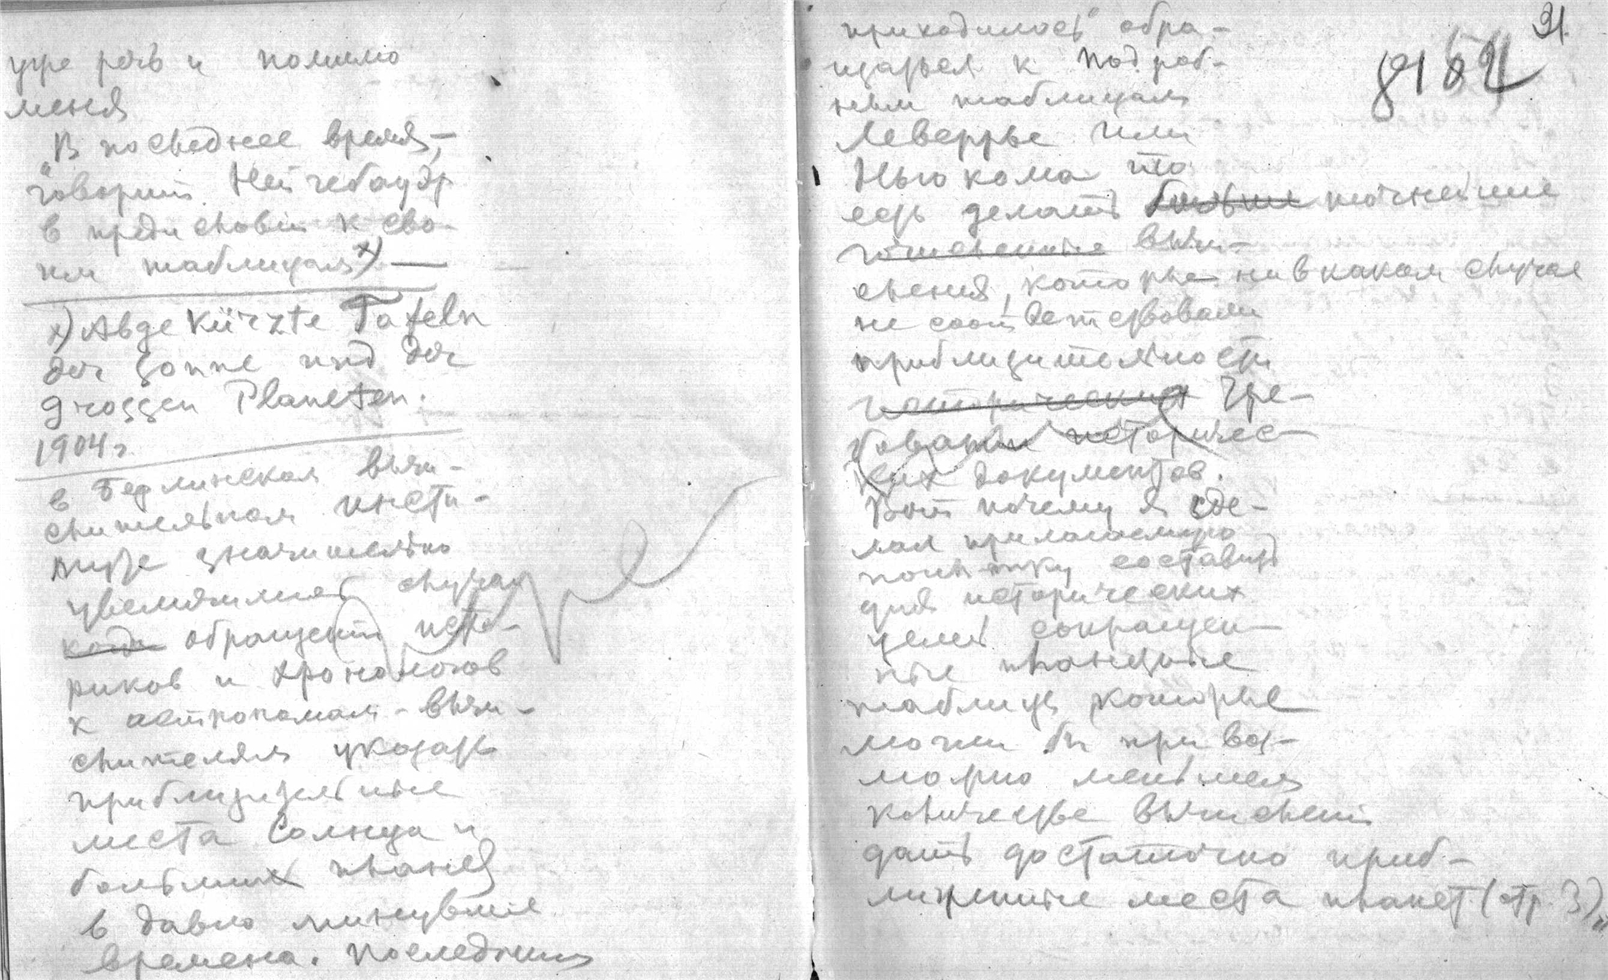 уже речь и помимо
меня
"В последнее время, —
говорит Нейгебауэр
в предисловии к сво-
им таблицам х) —
х) Abgekürzte Tafeln
der Sonne und der
grossen Planeten.
1904 г
в Берлинском вычи-
слительном инсти-
туте значительно
увеличились случаи
когда обращения исто-
риков и хронологов
к астрономам - вычи-
слителям указать
приблизительные
места Солнца и
больших планет
в давно минувшие
времена. Последним
91.
приходилось обра-
щаться к подроб-
ным таблицам
Леверрье или
Ньюкома то
есть делать точнейшие
вычи-
сления, которые ни в каком случае
не соответствовали
приблизительности
исторических тре-
бований историчес-
ких документов.
Вот почему я сде-
лал прилагаемую
попытку составить
для исторических
целей сокращен-
ные планетные
таблицы которые
могли бы при воз-
можно меньшем
количестве вычислений
дать достаточно приб-
лиженные места планет (стр. 3)"